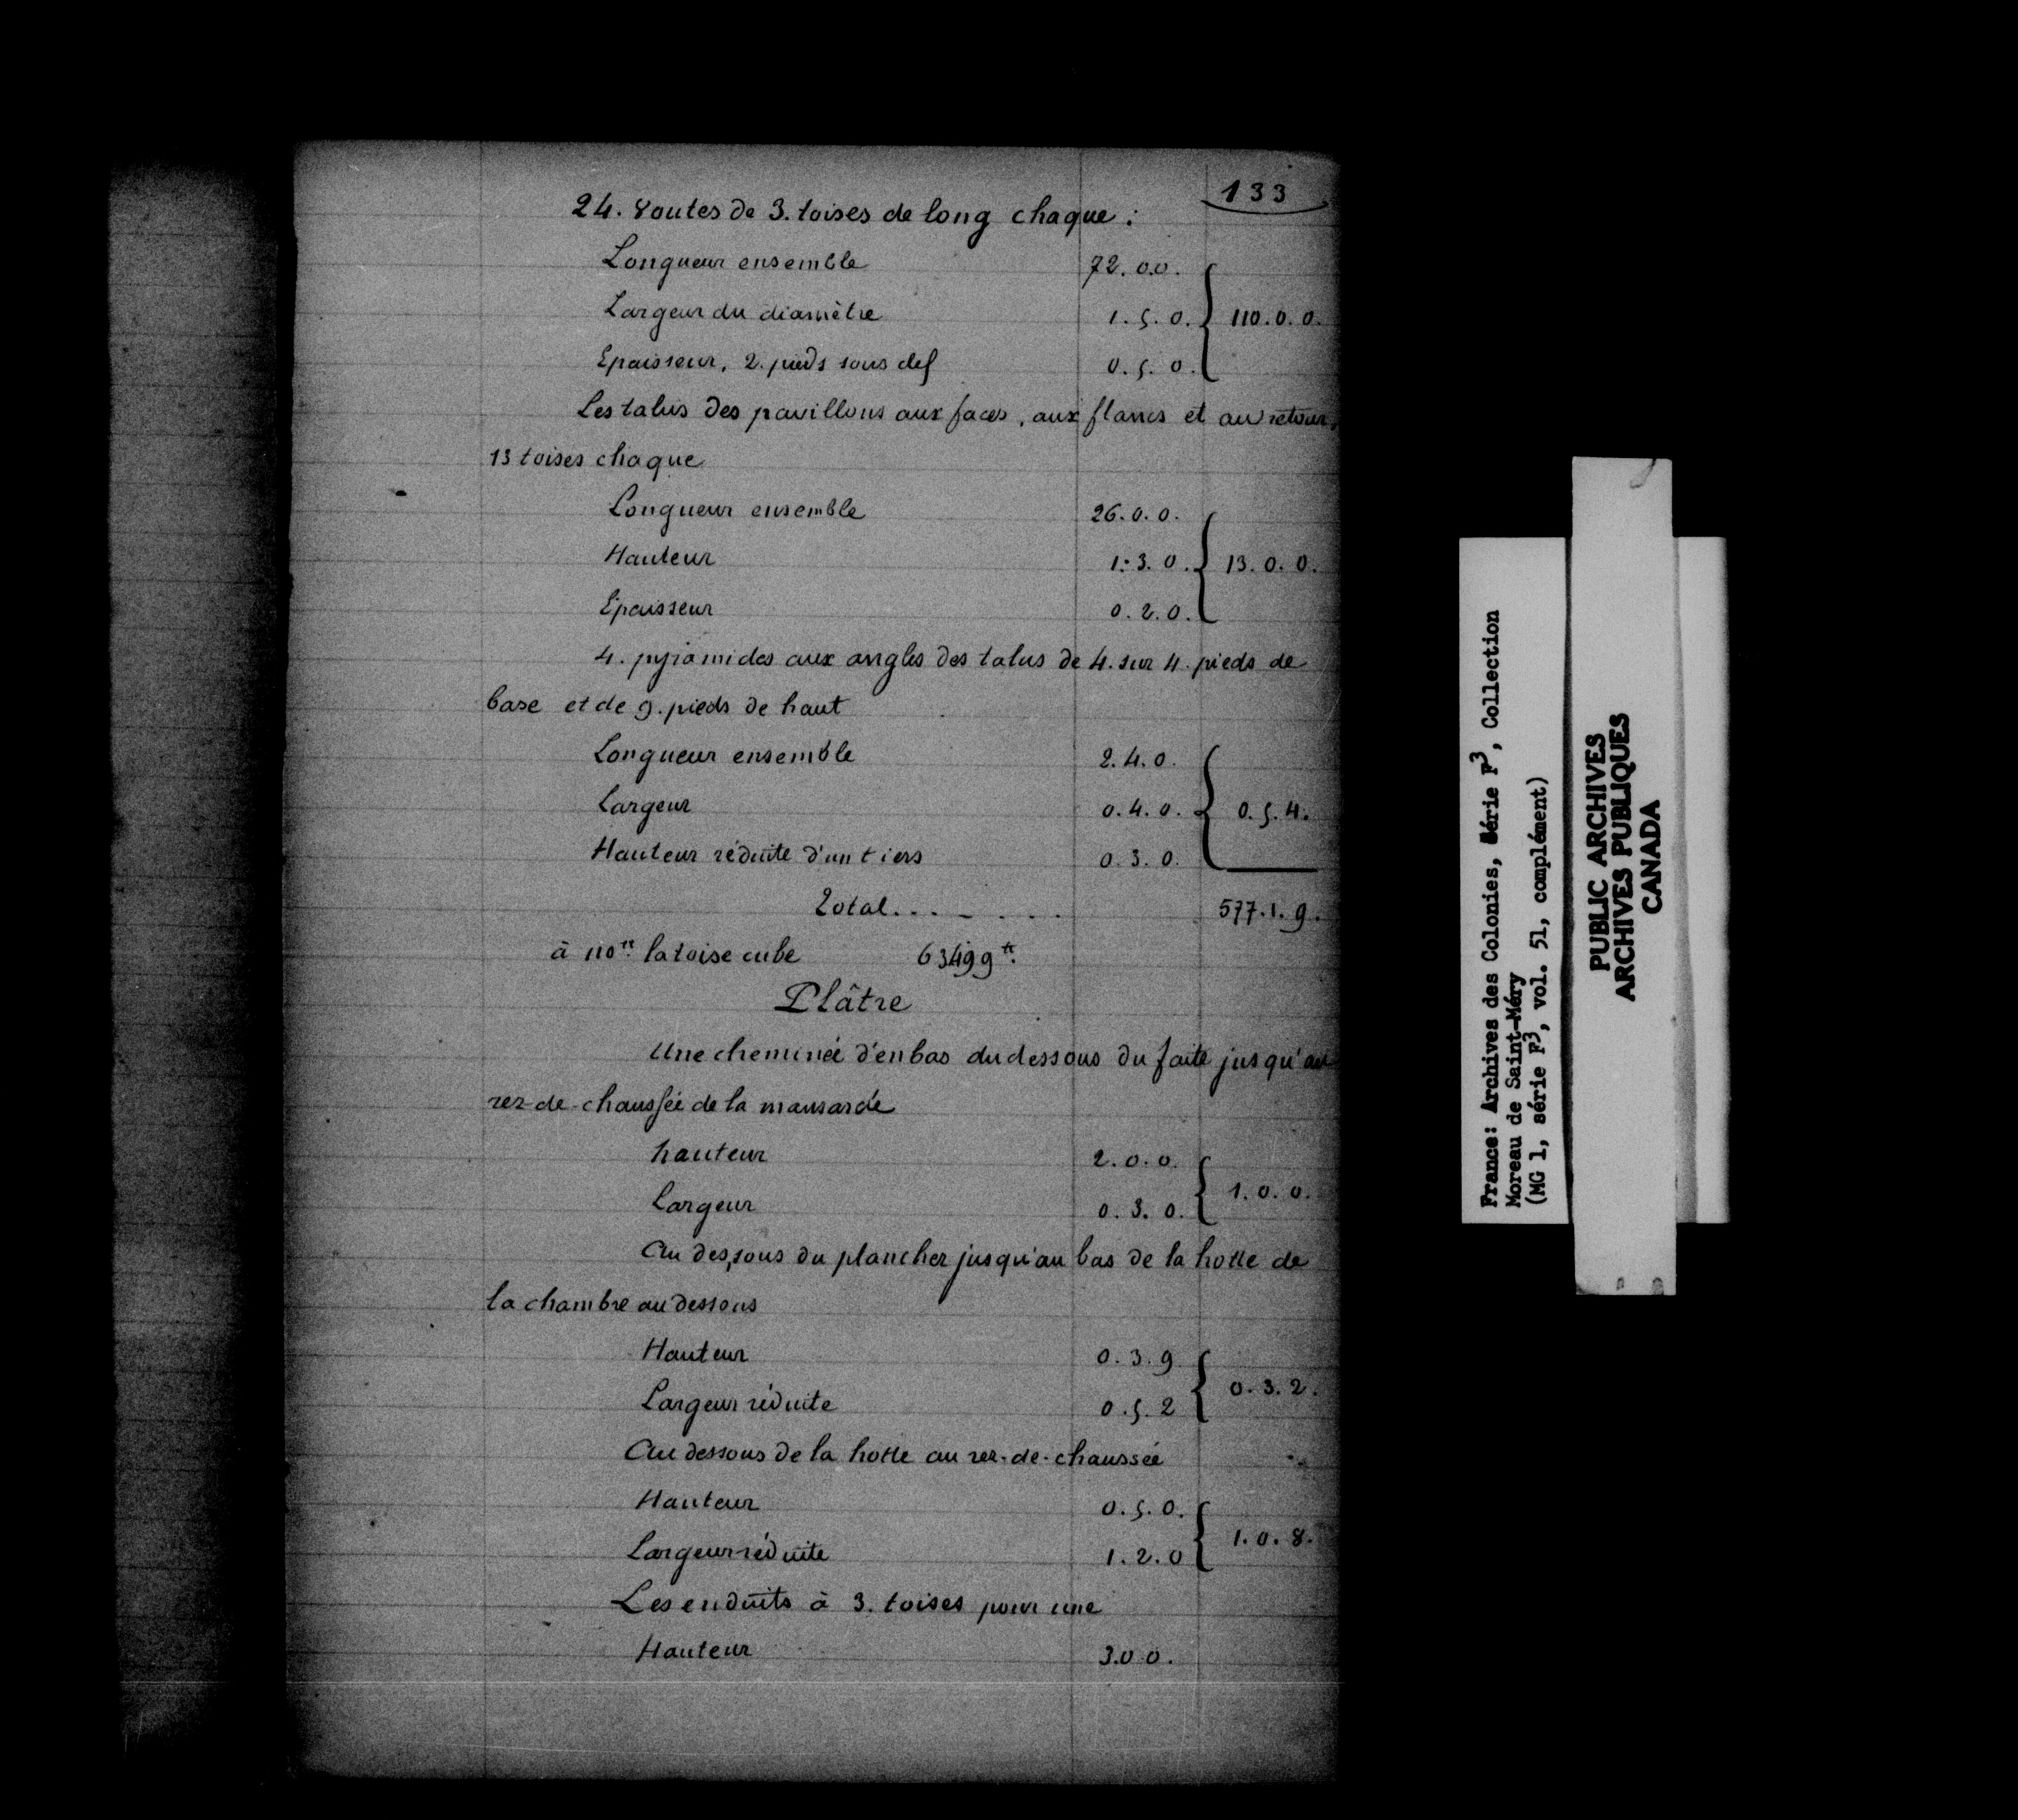 133
24. voutes de 3. toises de long chaque :
Longueur ensemble 72. 0.0.
Largeur du diamètre 1. 5. 0. 110. 0. 0.
Epaisseur, 2. pieds sous clef 0. 5. 0.
Les talus des pavillons aux faces, aux flancs et au retour,
13 toises chaque
Longueur ensemble 26. 0. 0.
Hauteur 1. 3. 0. 13. 0. 0.
Epaisseur 0. 2. 0.
4. pyramides aux angles des talus de 4. sur 4. pieds de
base et de 9. pieds de haut
Longueur ensemble 2. 4. 0.
Largeur 0. 4. 0. 0. 5. 4.
Hauteur réduite d'un tiers 0. 3. 0.
Total. . . . . . . 577. 1. 9.
à 110tt la toise cube 63499tt
Plâtre
Une cheminée d'en bas du dessous du faite jusqu'au
rez-de-chaussée de la mansarde
hauteur 2. 0. 0.
Largeur 0. 3. 0. 1. 0. 0.
Au dessous du plancher jusqu'au bas de la hotte de
la chambre au dessous
Hauteur 0. 3. 9
Largeur réduite 0. 5. 2 0. 3. 2.
Au dessous de la hotte au rez-de-chaussée
Hauteur 0. 5. 0.
Largeur réduite 1. 2. 0 1. 0. 8.
Les enduits à 3. toises pour une
Hauteur 3.0 0.
France: Archives des Colonies, Série F3, Collection
Moreau de Saint-Méry
(MG 1, série F3, vol. 51, complément)
PUBLIC ARCHIVES
ARCHIVES PUBLIQUES
CANADA